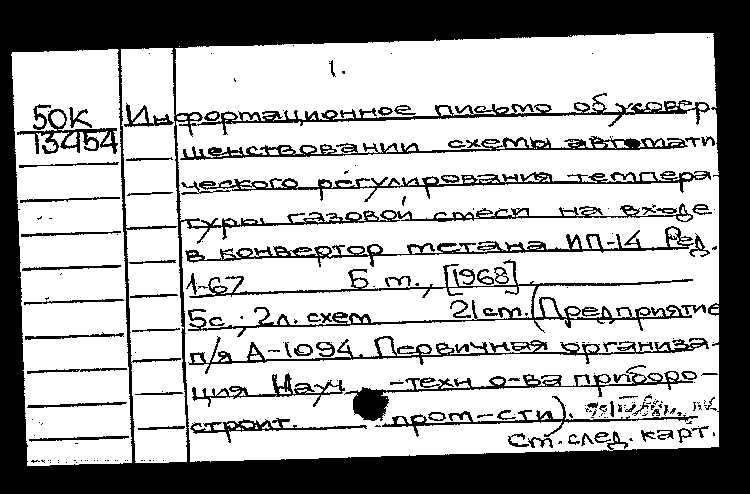 1.
50К Информационное письмо об усовер-
13454 шенствовании схемы автомати
ческого регулирования темпера-
туры газовой смеси на входе
в конвертор метана ИП-14 Ред.
1-67 Б. м., [1968]
5с.; 2л. схем 21 см. (Предприятие
п/я А-1094. Первичная организа-
ция Науч.-техн о-ва приборо-
строит. пром-сти).
См. след. карт.